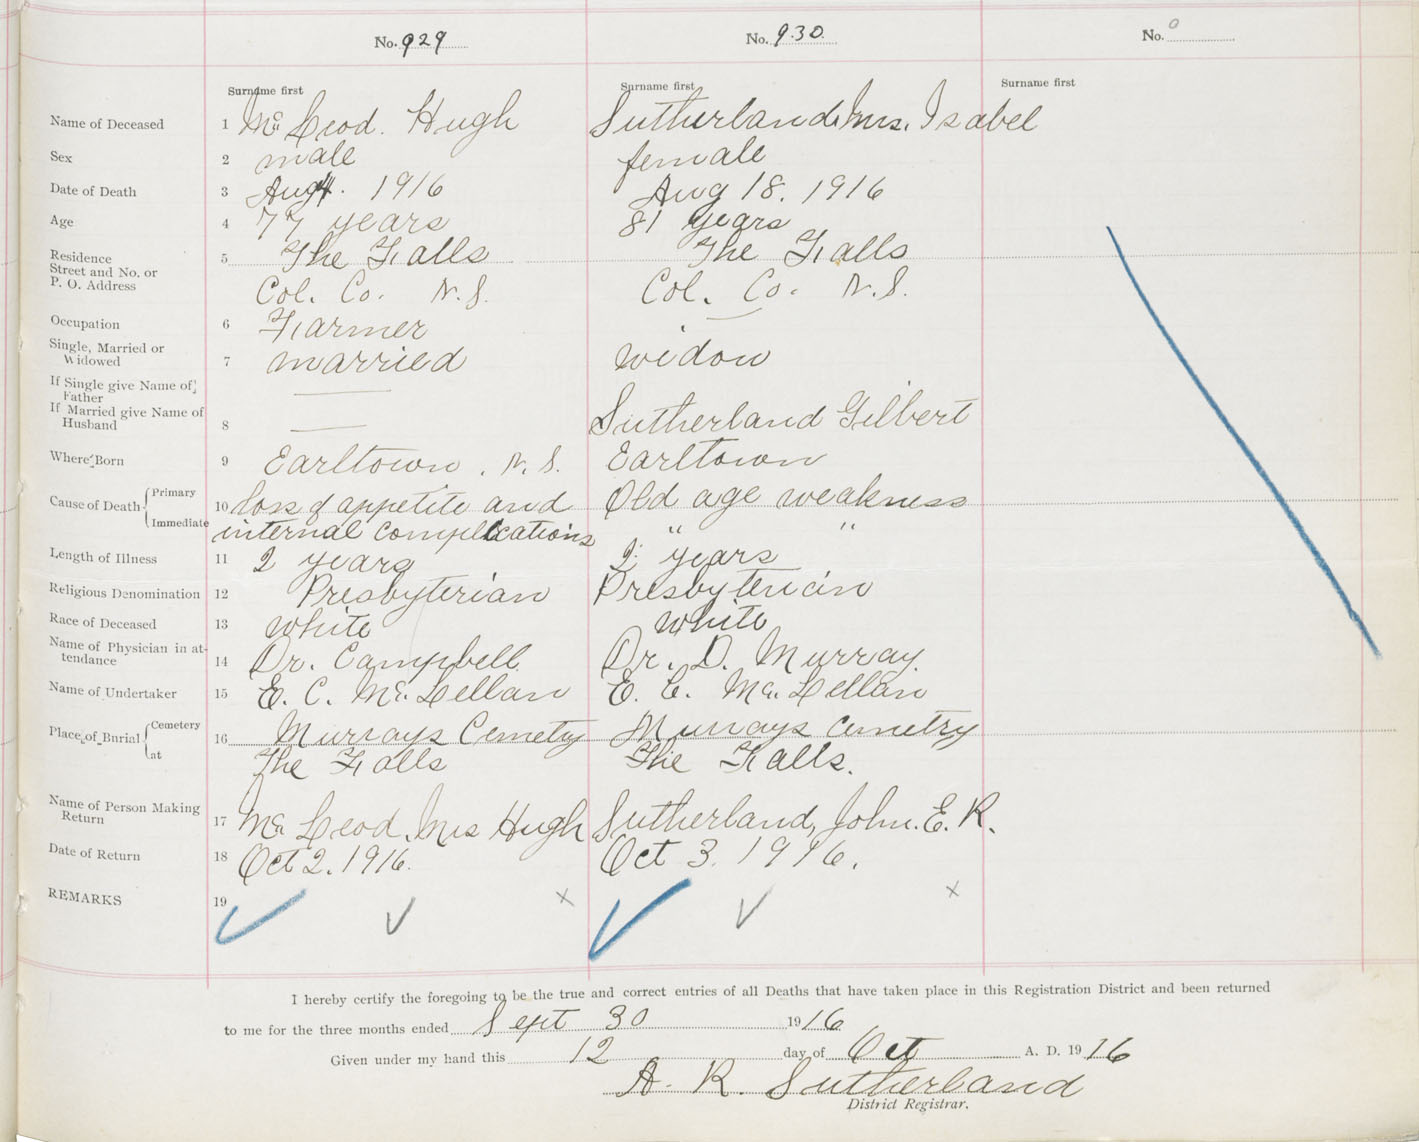 No. 929 No. 930 No.
Surname first Surname first Surname first
Name of Deceased 1 Mc Leod. Hugh Sutherland, Mrs. Isabel
Sex 2 male female
Date of Death 3 Aug 4. 1916 Aug 18. 1916
Age 4 77 years 81 years
Residence 5 The Falls The Falls
Street and No. or
P. O. Address Col. Co. N.S. Col. Co. N.S.
Occupation 6 Farmer —
Single, Married or
Widowed 7 married widow
If Single give Name of
Father —
If Married give Name of
Husband 8 — Sutherland Gilbert
Where Born 9 Earltown. N.S. Earltown
Cause of Death { Primary 10 loss of appetite and Old age weakness
Immediate internal complications " "
Length of Illness 11 2 years 2 years
Religious Denomination 12 Presbyterian Presbyterian
Race of Deceased 13 white white
Name of Physician in at-
tendance 14 Dr. Campbell Dr. D. Murray.
Name of Undertaker 15 E. C. Mc. Lellan E. C. Mc. Lellan
Place of Burial { Cemetery 16 Murrays Cemetry Murrays Cemetry
at The Falls The Falls.
Name of Person Making
Return 17 Mc Leod, Mrs Hugh Sutherland, John. E. R.
Date of Return 18 Oct 2. 1916. Oct 3. 1916.
REMARKS 19
I hereby certify the foregoing to be the true and correct entries of all Deaths that have taken place in this Registration District and been returned
to me for the three months ended Sept 30 1916
Given under my hand this 12 day of Oct A. D. 1916
A. R. Sutherland
District Registrar.